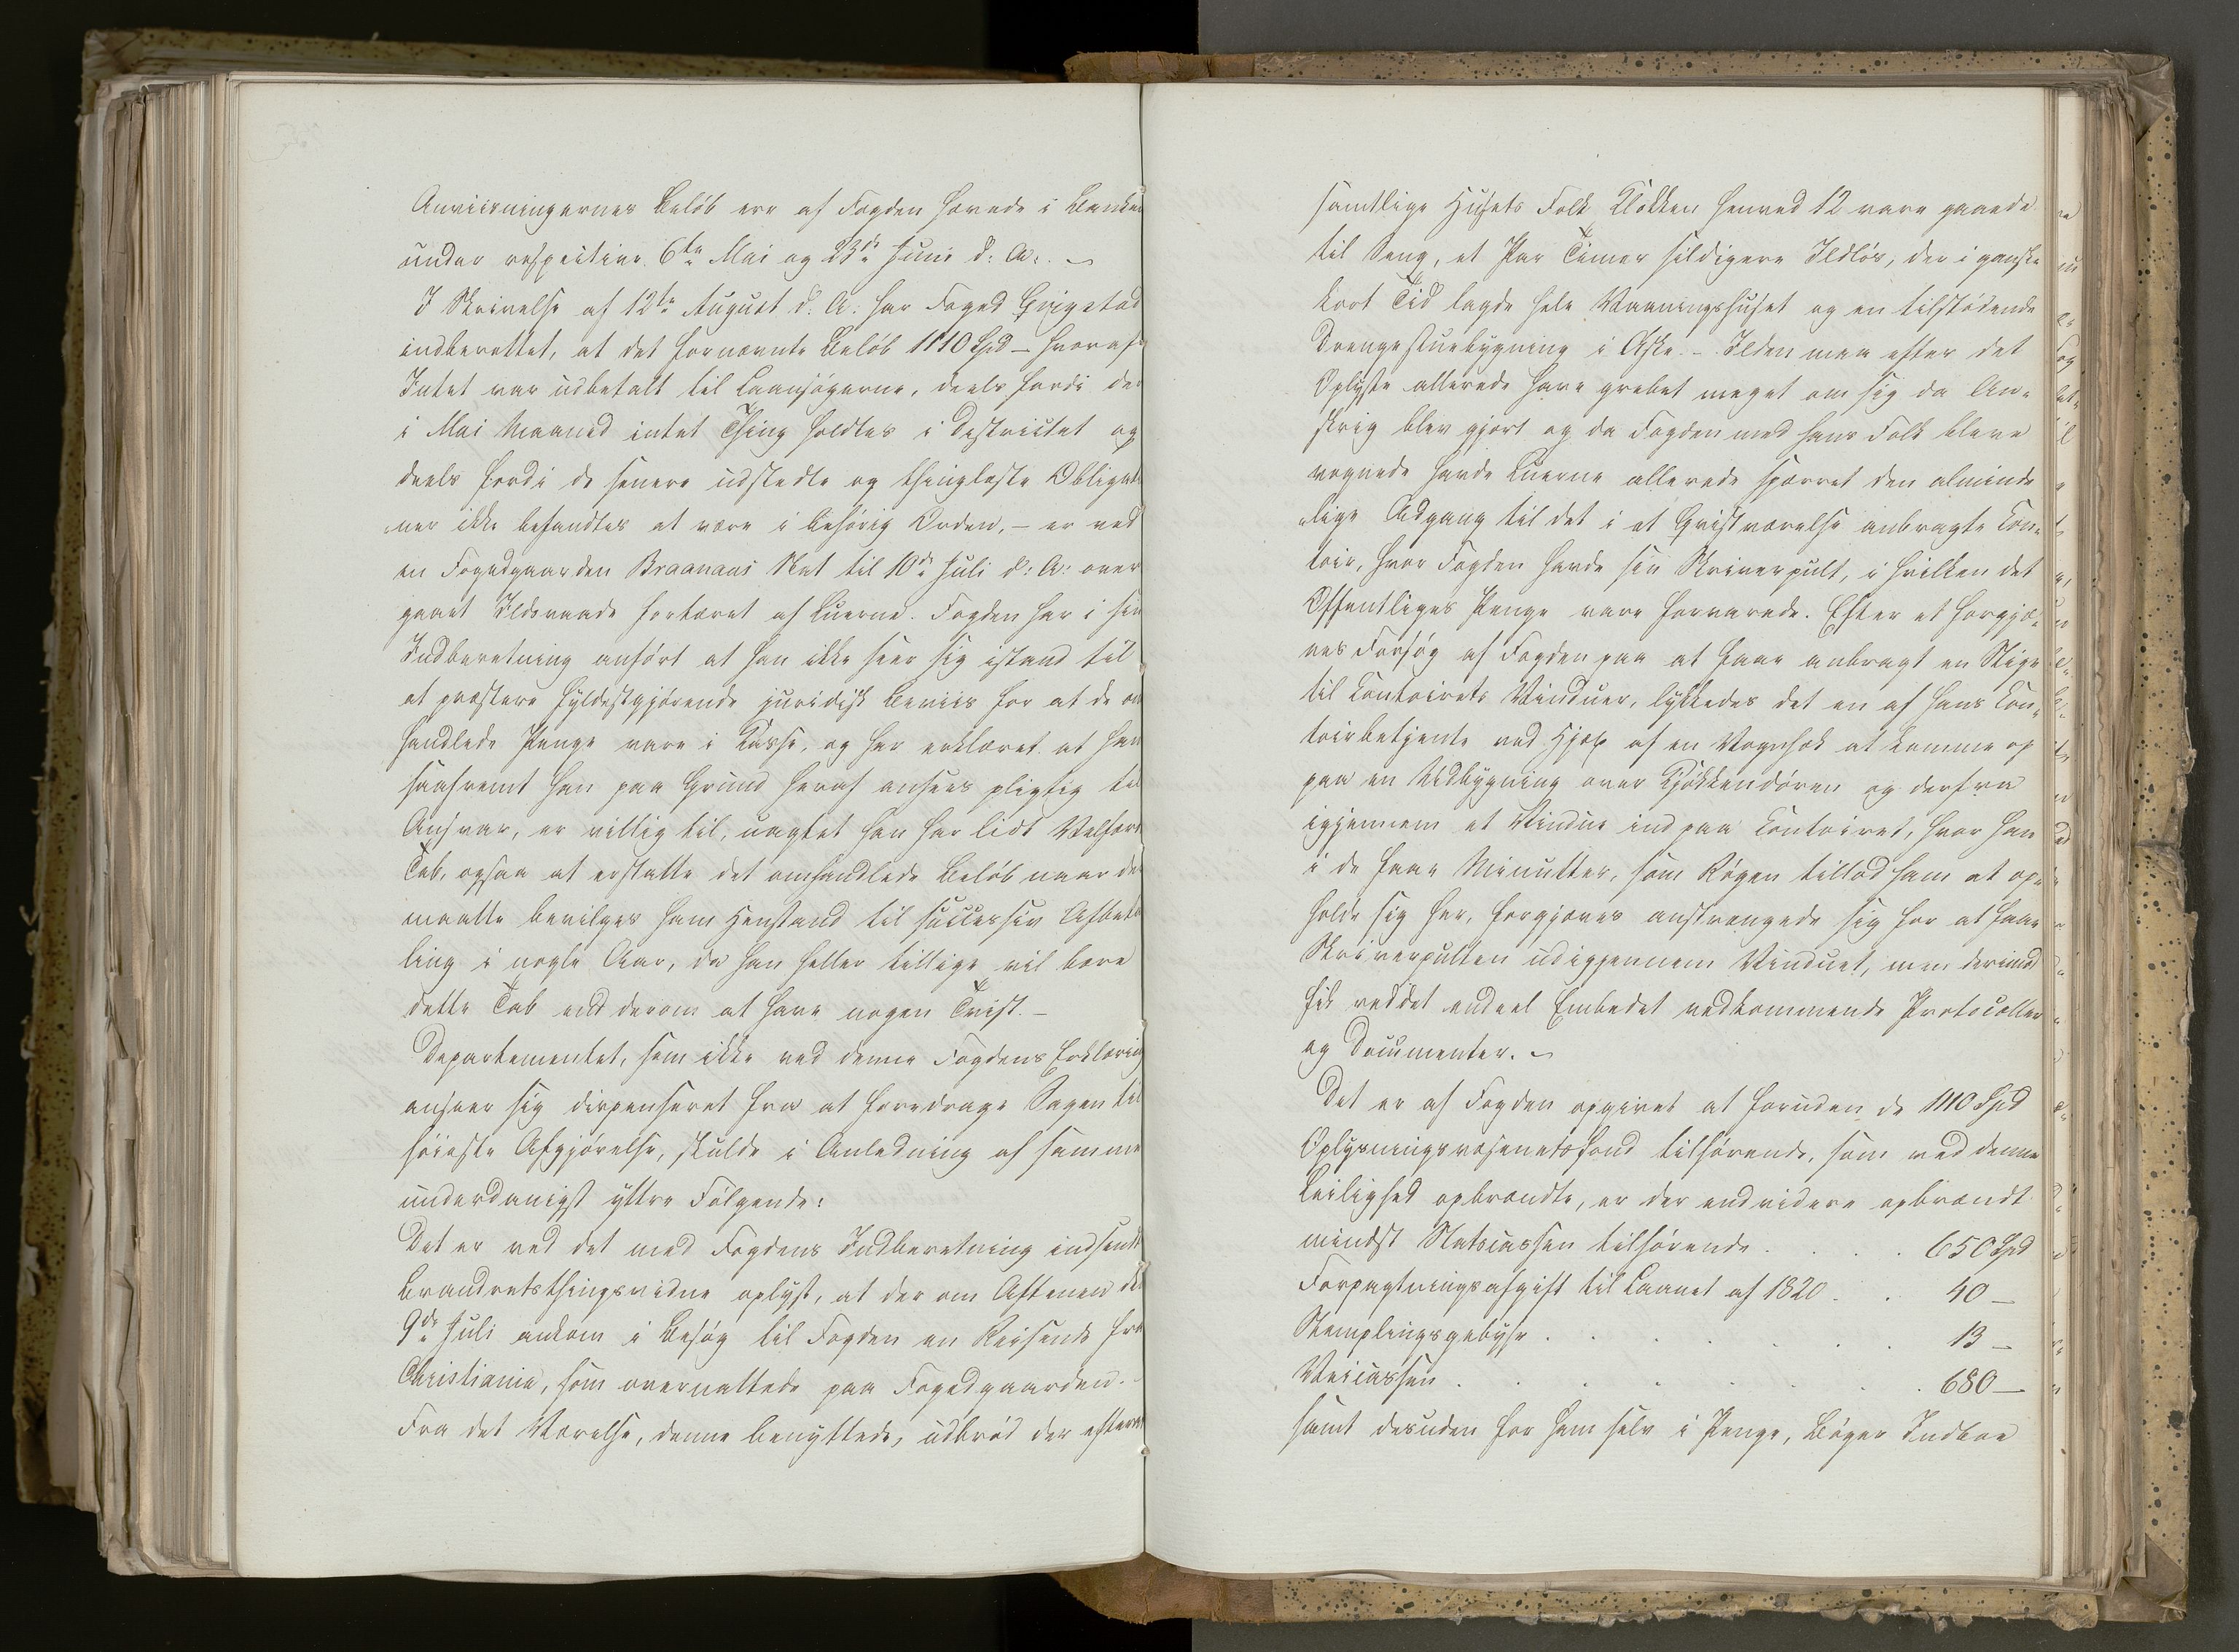 Anviisningernes Beløb ere af Fogden hævede i Banken
under respective 6te Mai og 23de Juni d: A: . –
I Skrivelse af 12te August d. A: har Foged Grigstad
indberettet, at det fornævnte Beløb 1110 Spd – hvoraf
Intet var udbetalt til Laansøgerne, deels fordi der
i Mai Maaned intet Thing holdtes i Districtet og
deels fordi de senere udstedte og thinglæste Obligati
ner ikke befandtes at være i behørig Orden, – er ved
en Fogedgaarden Braanaas Nat til 10de Juli d: A: over
gaaet Ildsvaade fortæret af Luerne. Fogden har i sin
Indberetning anført at han ikke seer sig istand til
at præstere fyldestgjørende juridisk Beviis for at de om
handlede Penge vare i Kasse, og har erklæret at han
saafremt han paa Grund heraf ansees pligtig til
Ansvar, er villig til, uagtet han har lidt Velfærds
Tab, ogsaa at erstatte det omhandlede Beløb naar der
maatte bevilges ham Henstand til successiv Afbeta
ling i nogle Aar, da han heller tillige vil bære
dette Tab end derom at have nogen Tvist. –
Departementet, som ikke ved denne Fogdens Erklæring
anseer sig dispenseret fra at foredrage Sagen til
høieste Afgjørelse, skulde i Anledning af samme
underdanigst yttre Følgende:
Det er ved det med Fogdens Indberetning indsendte
Brandretsthingsvidne oplyst, at der om Aftenen den
9de Juli ankom i Besøg til Fogden en Reisende fra
Christiania, som overnattede paa Fogedgaarden.
Fra det Værelse, denne benyttede, udbrød der efterat
samtlige Husets Folk Klokken henved 12 vare gaaede
til Seng, et Par Timer sildigere Ildløs, der i ganske
kort Tid lagde hele Vaaningshuset og en tilstødende
Drengestuebygning i Aske. – Ilden maa efter det
Oplyste allerede have grebet meget om sig da An-
skrig blev gjort og da Fogden med hans Folk bleve
vognede havde Luerne allerede spærret den alminde
lige Adgang til det i et Qvistværelse anbragte Con-
toir, hvor Fogden havde sin Skriverpult, i hvilken det
Offentliges Penge vare forvarede. Efter et forgjæ-
ves Forsøg af Fogden paa at faae anbragt en Stige
til Contoirets Vinduer, lykkedes det en af hans Con-
toirbetjente ved Hjælp af en Vognhæk at komme op
paa en Udbygning over Kjøkkendøren og derfra
igjennem et Vindue ind paa Contoiret, hvor han
i de faae Minutter, som Røgen tillod ham at op-
holde sig her, forgjæves anstrængede sig for at faae
Skriverpulten ud igjennem Vinduet, men derimod
fik reddet endeel Embedet vedkommende Protocoller
og Documenter. –
Det er af Fogden opgivet at foruden de 1110 Spd
Oplysningsvæsenetsfond tilhørende, som ved denne
Leilighed opbrændte, er der endvidere opbrændt
mindst Statscassen tilhørende . . . . 650 Spd
Forpagtningsafgift til Laanet af 1820 . . 40 –
Stemplingsgebyhr . . . . . . 13 –
Veicassen . . . . . . . 680 –
samt desuden for ham selv i Penge, Bøger Indboe